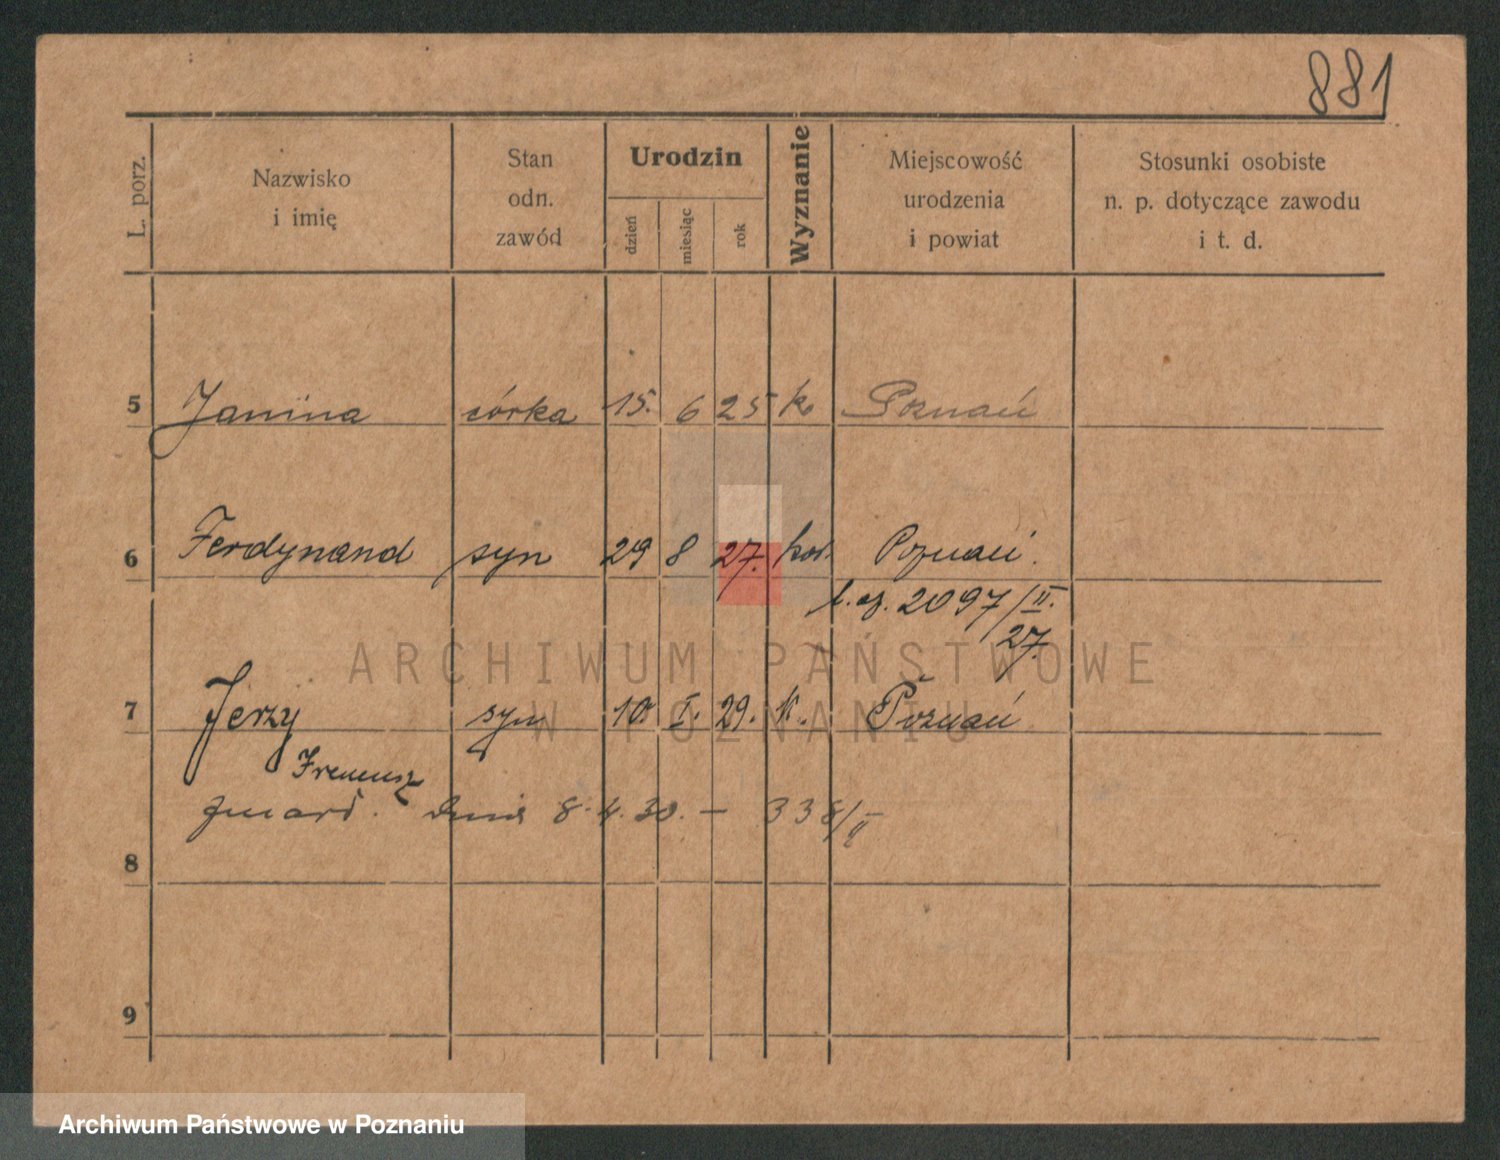 881
L. porz.
Nazwisko
i imię
Stan
odn.
zawód
Urodzin
dzień
miesiąc
rok
Wyznanie
Miejscowość
urodzenia
i powiat
Stosunki osobiste
n. p. dotyczące zawodu
i t. d.
5 Janina córka 15. 6 25 k. Poznań
6 Ferdynand syn 29 8 27. kat. Poznań.
2097/II.
27.
7 Jerzy syn 10. I. 29. k. Poznań
Ireneusz
zmarł. dnia 8.4.30. — 338/II
8
9
ARCHIWUM PAŃSTWOWE
W POZNANIU
Archiwum Państwowe w Poznaniu